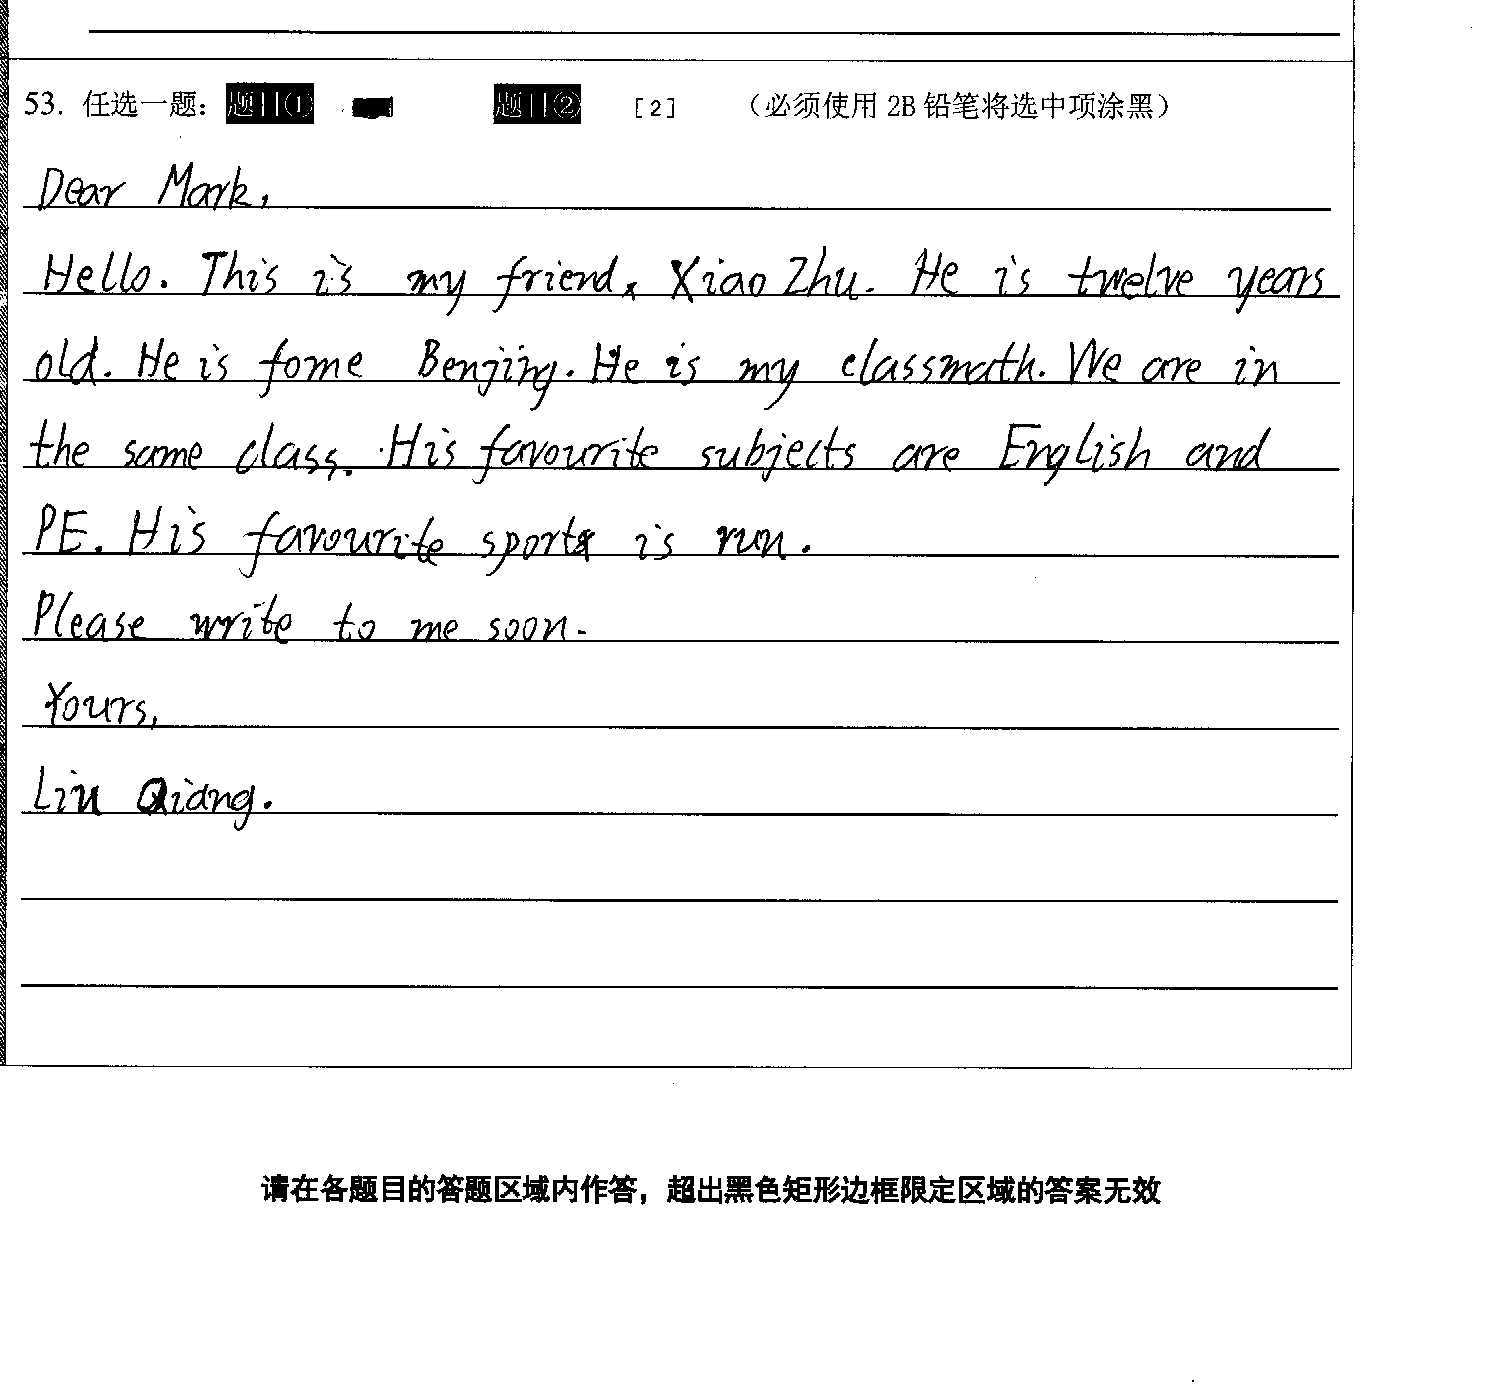 53. 任选一题： 题目① 题目② [2] （必须使用 2B 铅笔将选中项涂黑）
Dear Mark,
Hello. This is my friend, Xiao Zhu. He is twelve years
old. He is fome Benjing. He is my classmath. We are in
the same class. His favourite subjects are English and
PE. His favourite sport is run.
Please write to me soon.
Yours,
Liu Qiang.
请在各题目的答题区域内作答，超出黑色矩形边框限定区域的答案无效